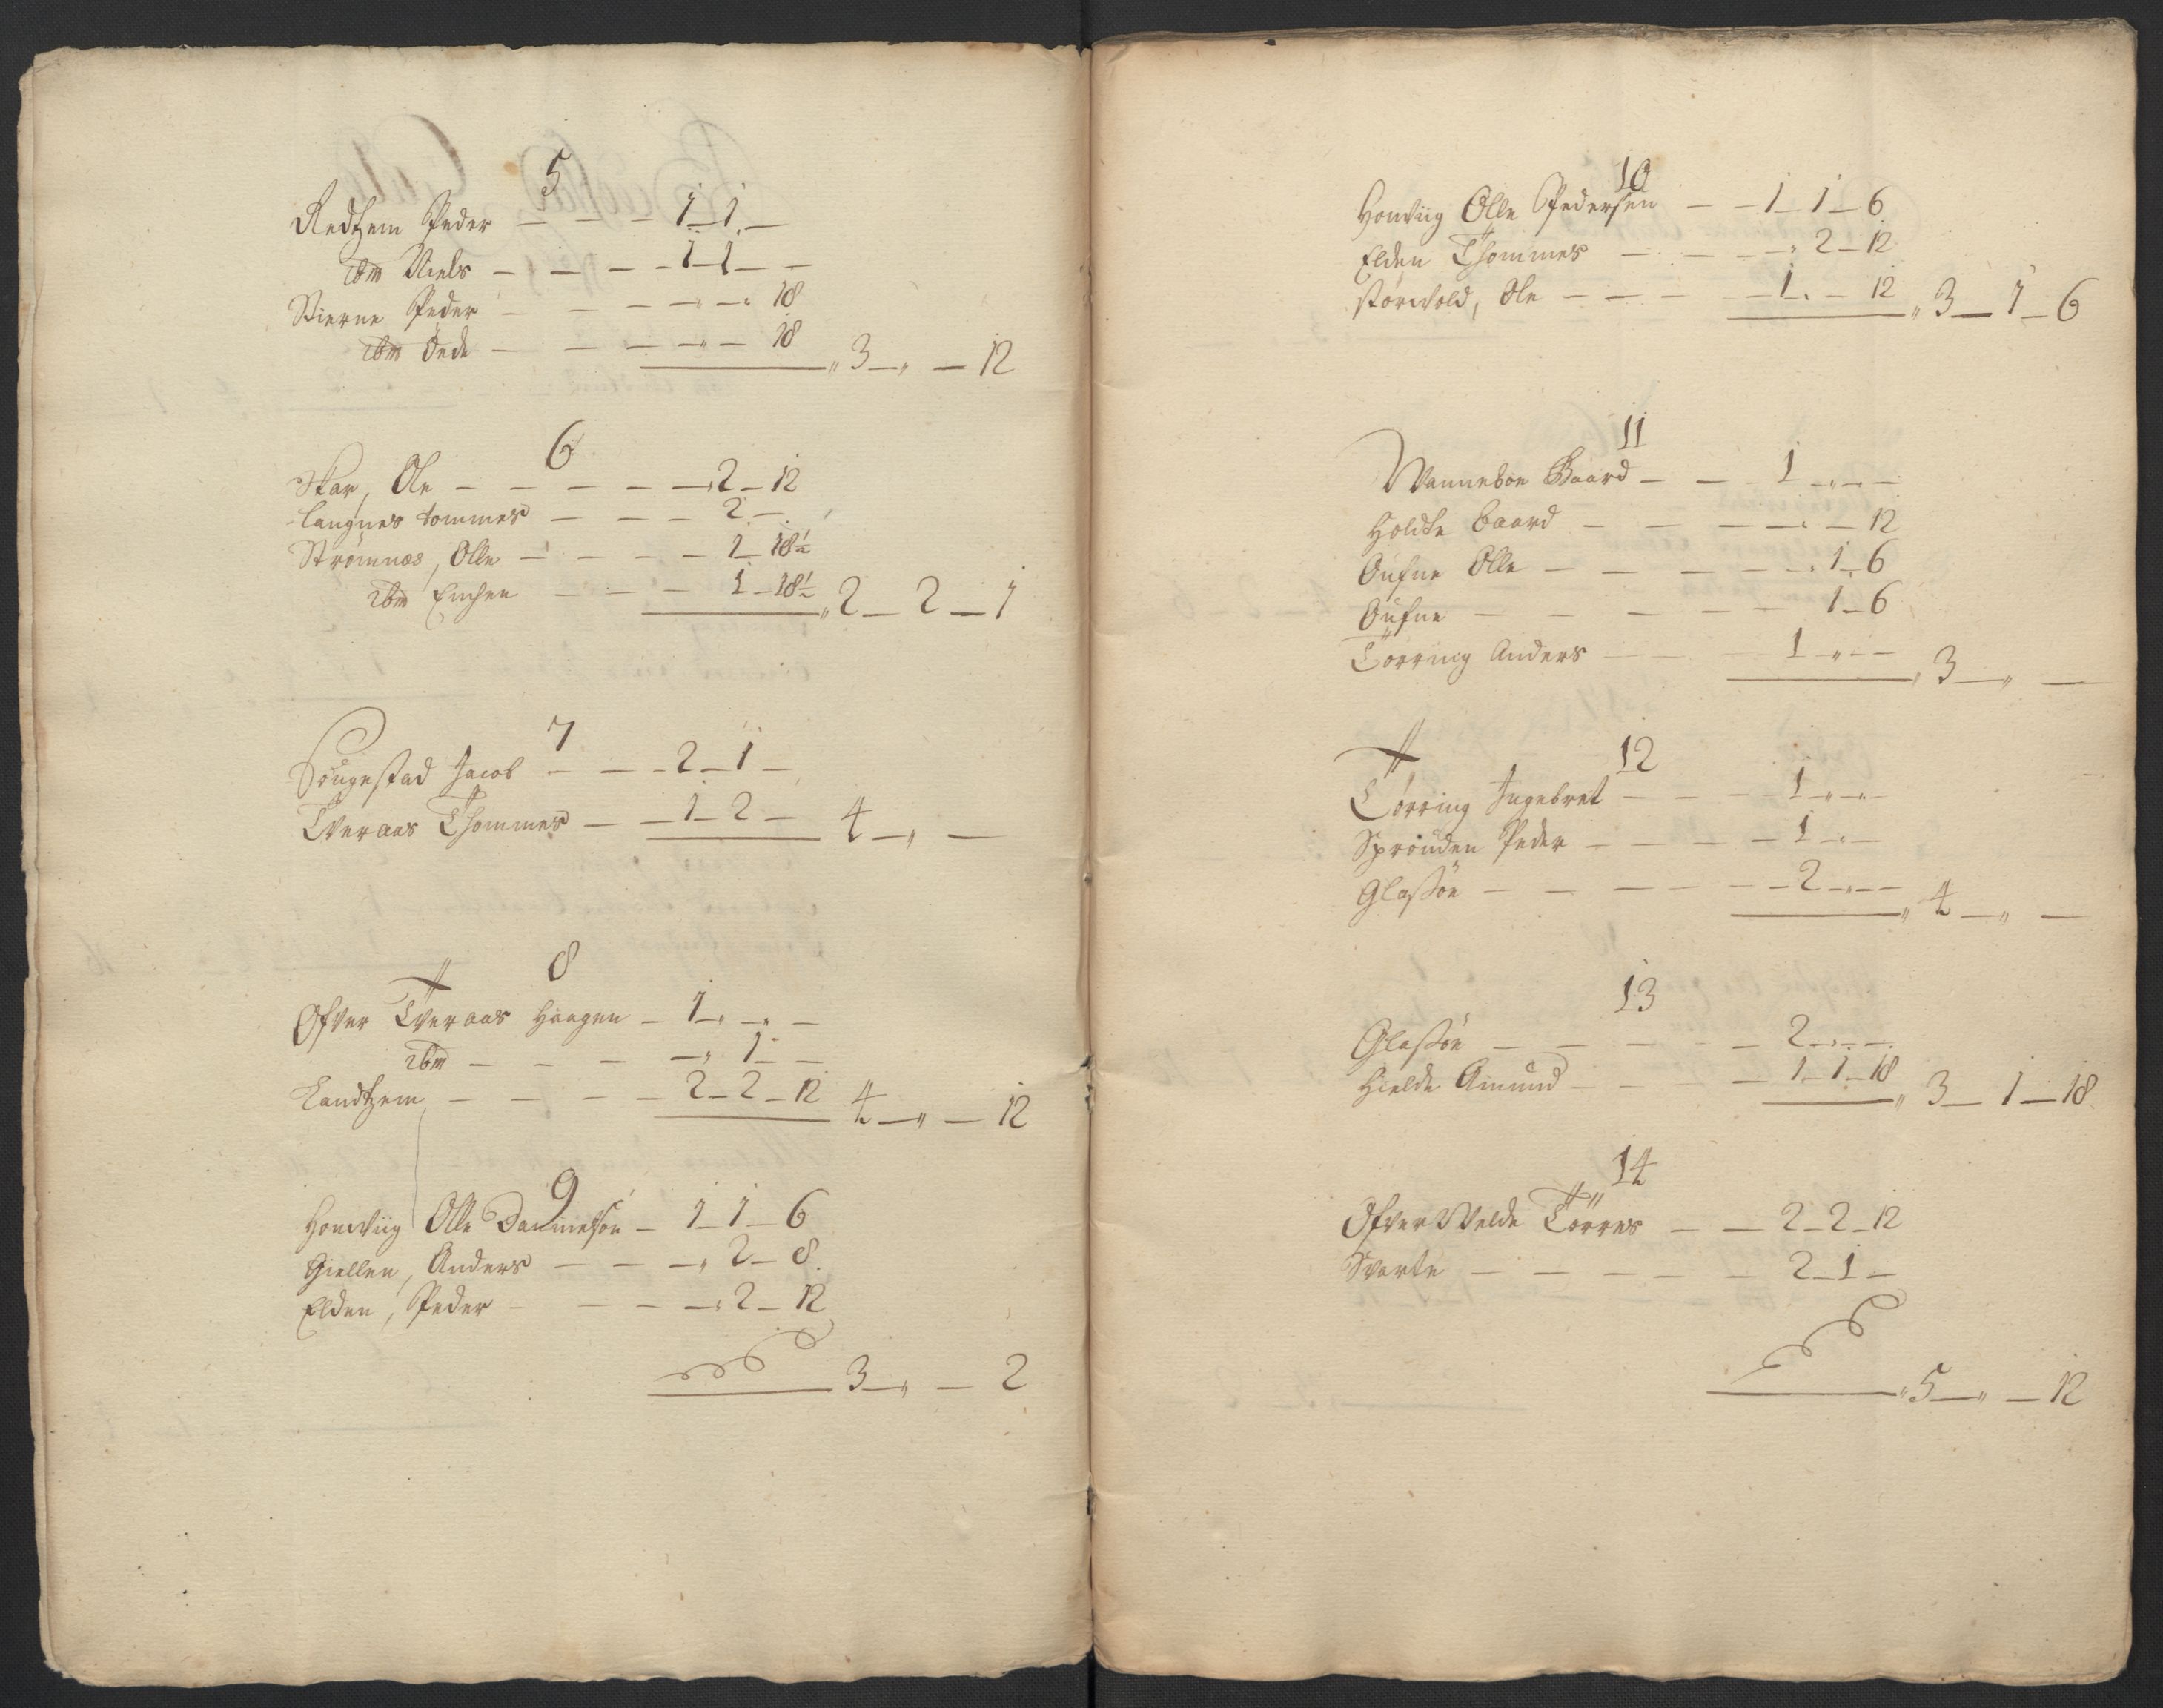 5
Redhem Peder — — — 1 — 1 —
ibm Niels — — — — 1 — 1 — —
Stierne Peder — — — — „ — „ 18
ibm Øde — — — — „ — 18
„ 3 — „ — 12
6
Skar, Ole — — — — — „ 2 — 12
Langnes tommes — — — 2 — „
Strømnæs, Olle — — — — 1 — 18½
ibm Emhen — — — 1 — 18½
„ 2 — 2 — 1
7
Sougestad Jacob — — — 2 — 1 —
Tveraas Thommes — — 1 — 2 — 4 — „ —
8
Ofver Tveraas Haagen — 1 — „ — „ —
ibm — — — — „ 1 — —
Landhem — — — — 2 — 2 — 12
4 — „ — 12
9
Honviig Olle Danielsøn — 1 — 1 — 6
Giellen, Anders — — — „ 2 — 8
Elden, Peder — — — — „ 2 — 12
3 — „ — 2
10
Honviig Olle Pedersen — — 1 — 1 — 6
Elden Thommes — — — — „ 2 — 12
Størvold, Ole — — — — 1 „ — 12
„ 3 — 1 — 6
11
Wannebøe Baard — — 1 — „ — —
Holdte Baard — — — — „ — 12
Oufne Olle — — — — — „ 1 — 6
Oufne — — — — — — 1 — 6
Tørring Anders — — — 1 „ — —
„ 3 — „ —
12
Tørring Ingebret — — — 1 — „ — „ —
Sprouden Peder — — — — 1 — „ —
Glasøe — — — — — — 2 — „ — —
„ 4 — „ —
13
Glasøe — — — — — — 2 — „ — —
Hielde Amund — — — — 1 — 1 — 18
„ 3 — 1 — 18
14
Ofver Welde Tørres — — 2 — 2 — 12
Svarte — — — — — — 2 — 1 —
„ 5 — „ — 12